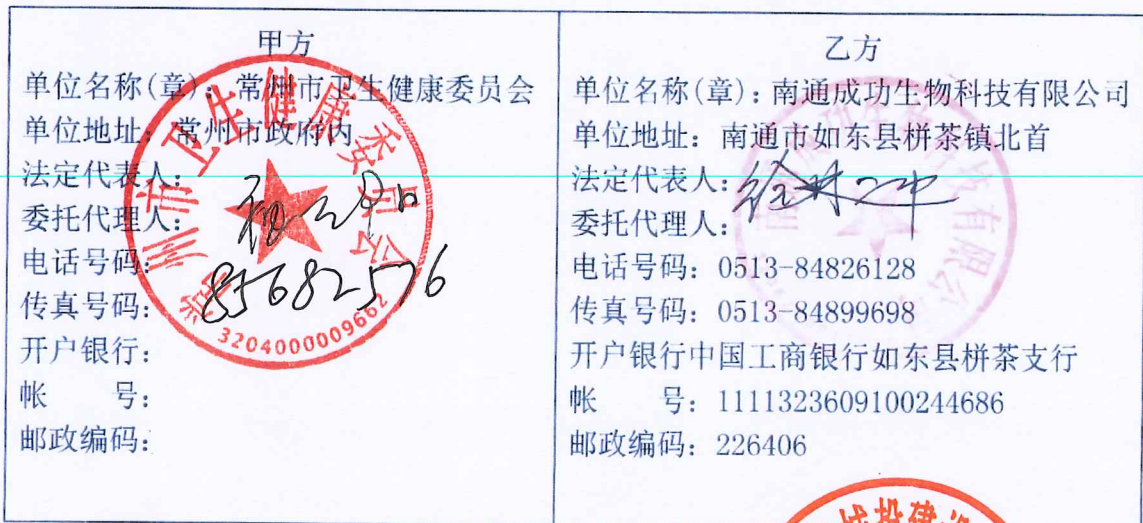 甲方
单位名称(章):常州市卫生健康委员会
单位地址:常州市政府内
法定代表人:
委托代理人:
电话号码:
85682576
传真号码:
开户银行:
帐 号:
邮政编码:
常州市卫生健康委员会
3204000009662
乙方
单位名称(章):南通成功生物科技有限公司
单位地址:南通市如东县栟茶镇北首
法定代表人:
委托代理人:
电话号码:0513-84826128
传真号码:0513-84899698
开户银行中国工商银行如东县栟茶支行
帐 号:1111323609100244686
邮政编码:226406